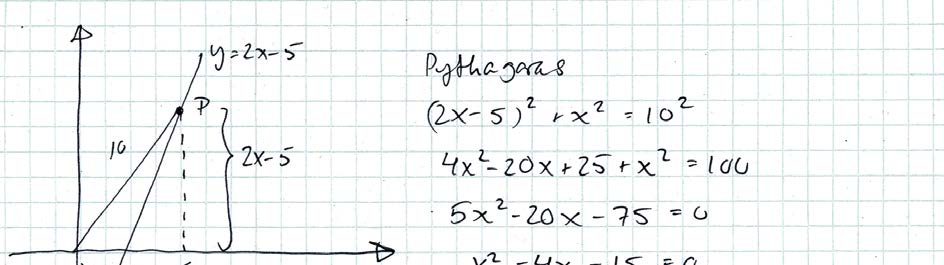 y=2x-5
P
10
2x-5
Pythagoras
(2x-5)² + x² = 10²
4x²-20x+25+x² = 100
5x²-20x-75 = 0
x²-4x-15 = 0